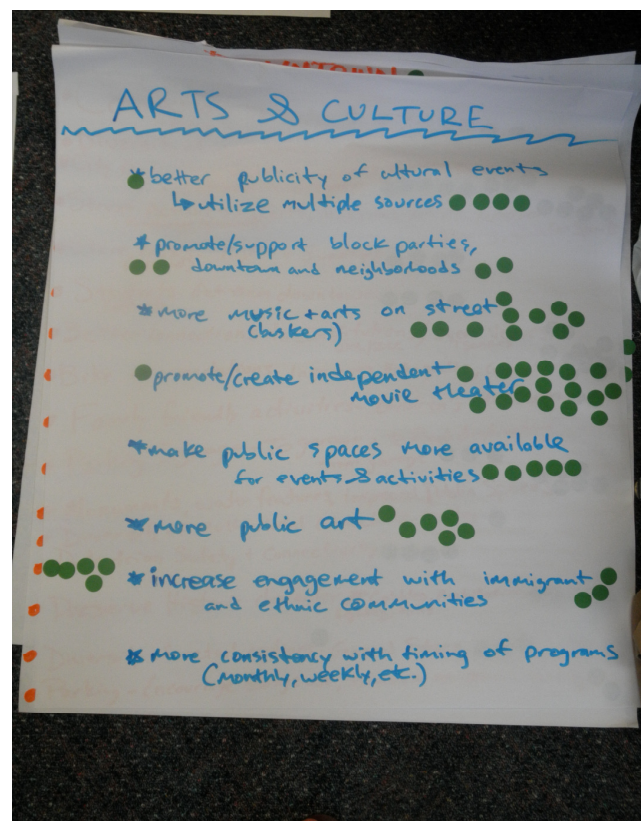 ARTS & CULTURE
* better publicity of cultural events
↳ utilize multiple sources
* promote/support block parties,
downtown and neighborhoods
* more music + arts on street
(buskers)
promote/create independent
movie theater
* make public spaces more available
for events & activities
* more public art
* increase engagement with immigrant
and ethnic communities
* more consistency with timing of programs
(monthly, weekly, etc.)